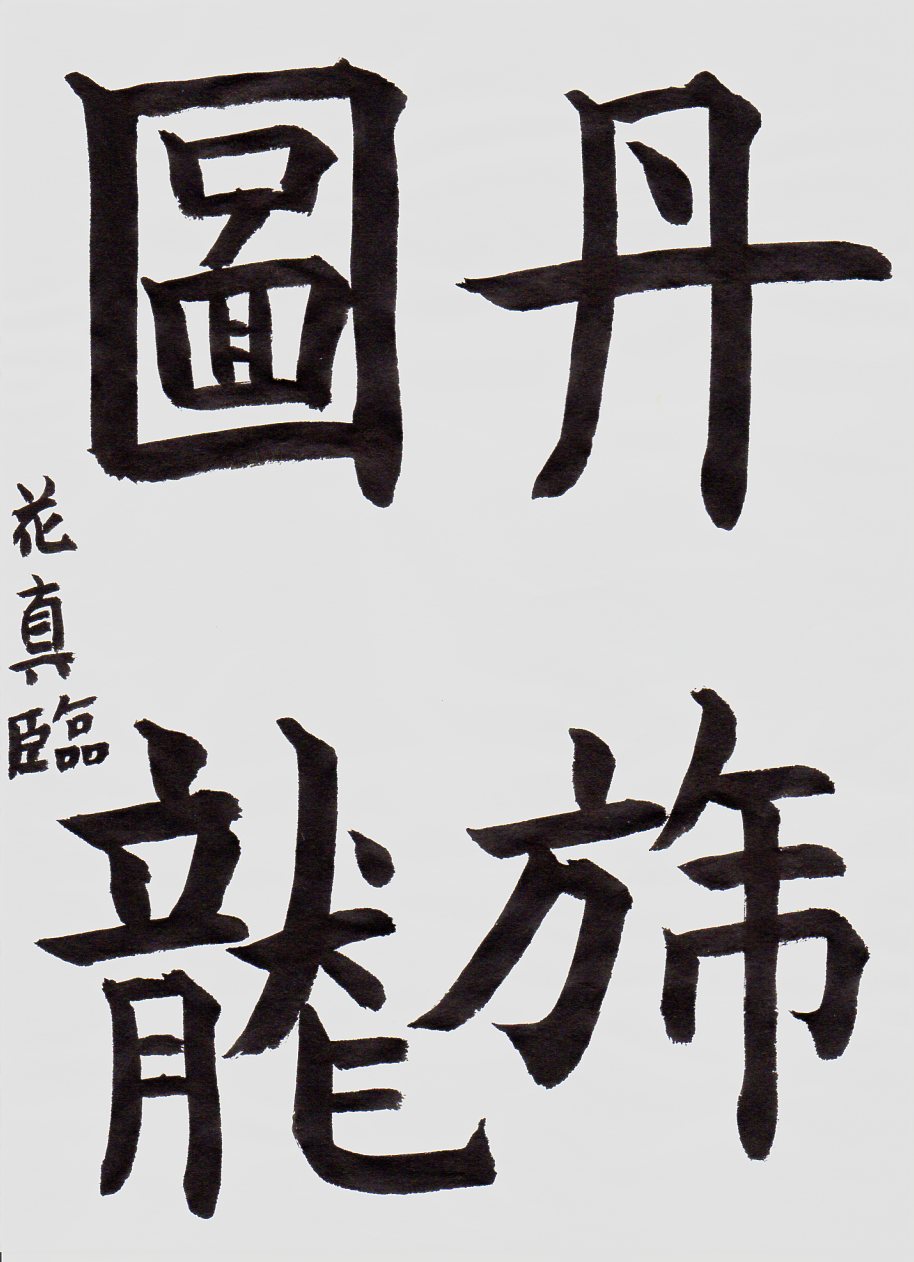 丹旆
圖龍
花真臨